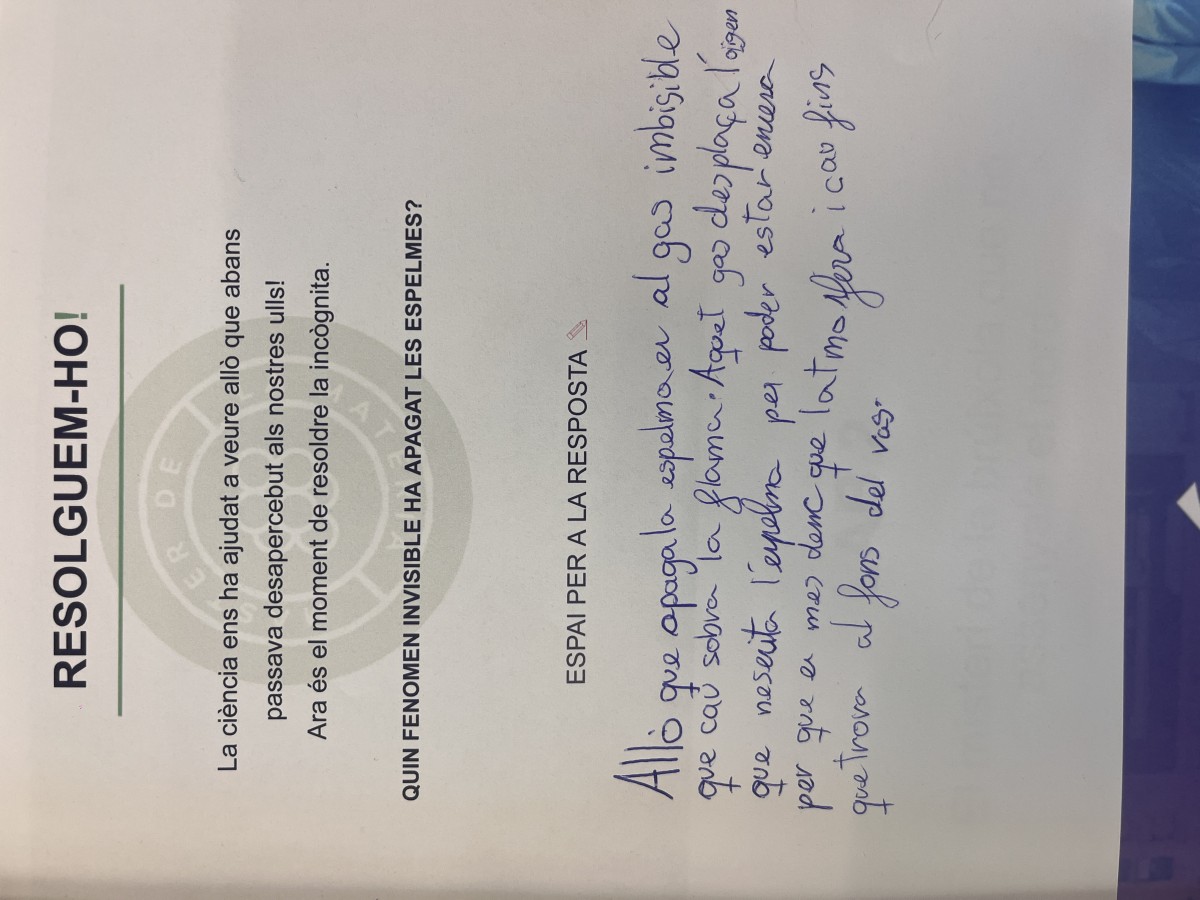 RESOLGUEM-HO!
La ciència ens ha ajudat a veure allò que abans
passava desapercebut als nostres ulls!
Ara és el moment de resoldre la incògnita.
QUIN FENOMEN INVISIBLE HA APAGAT LES ESPELMES?
ESPAI PER A LA RESPOSTA
Allò que apaga la espelma er al gas imbisible
que cau sobra la flama. Aquet gas desplaça l'oxigen
que neserita l'espelma per poder estar encesa
per que er mes denc que latmosfera i cau fins
que trova al fons del vas.